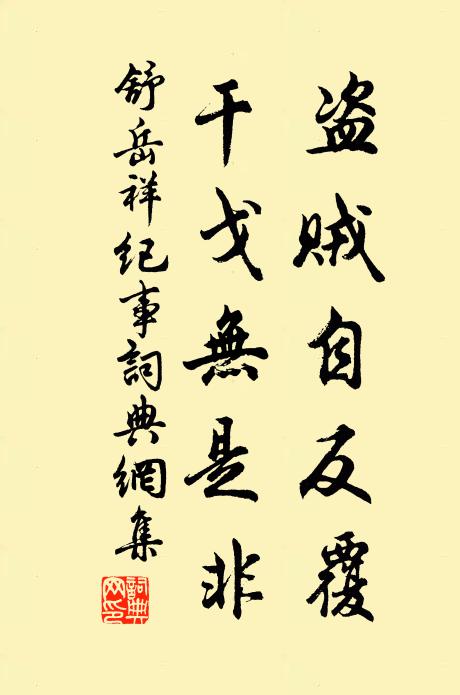 盗賊自反覆
干戈無是非
舒岳祥紀事詞典網集
詞典網印